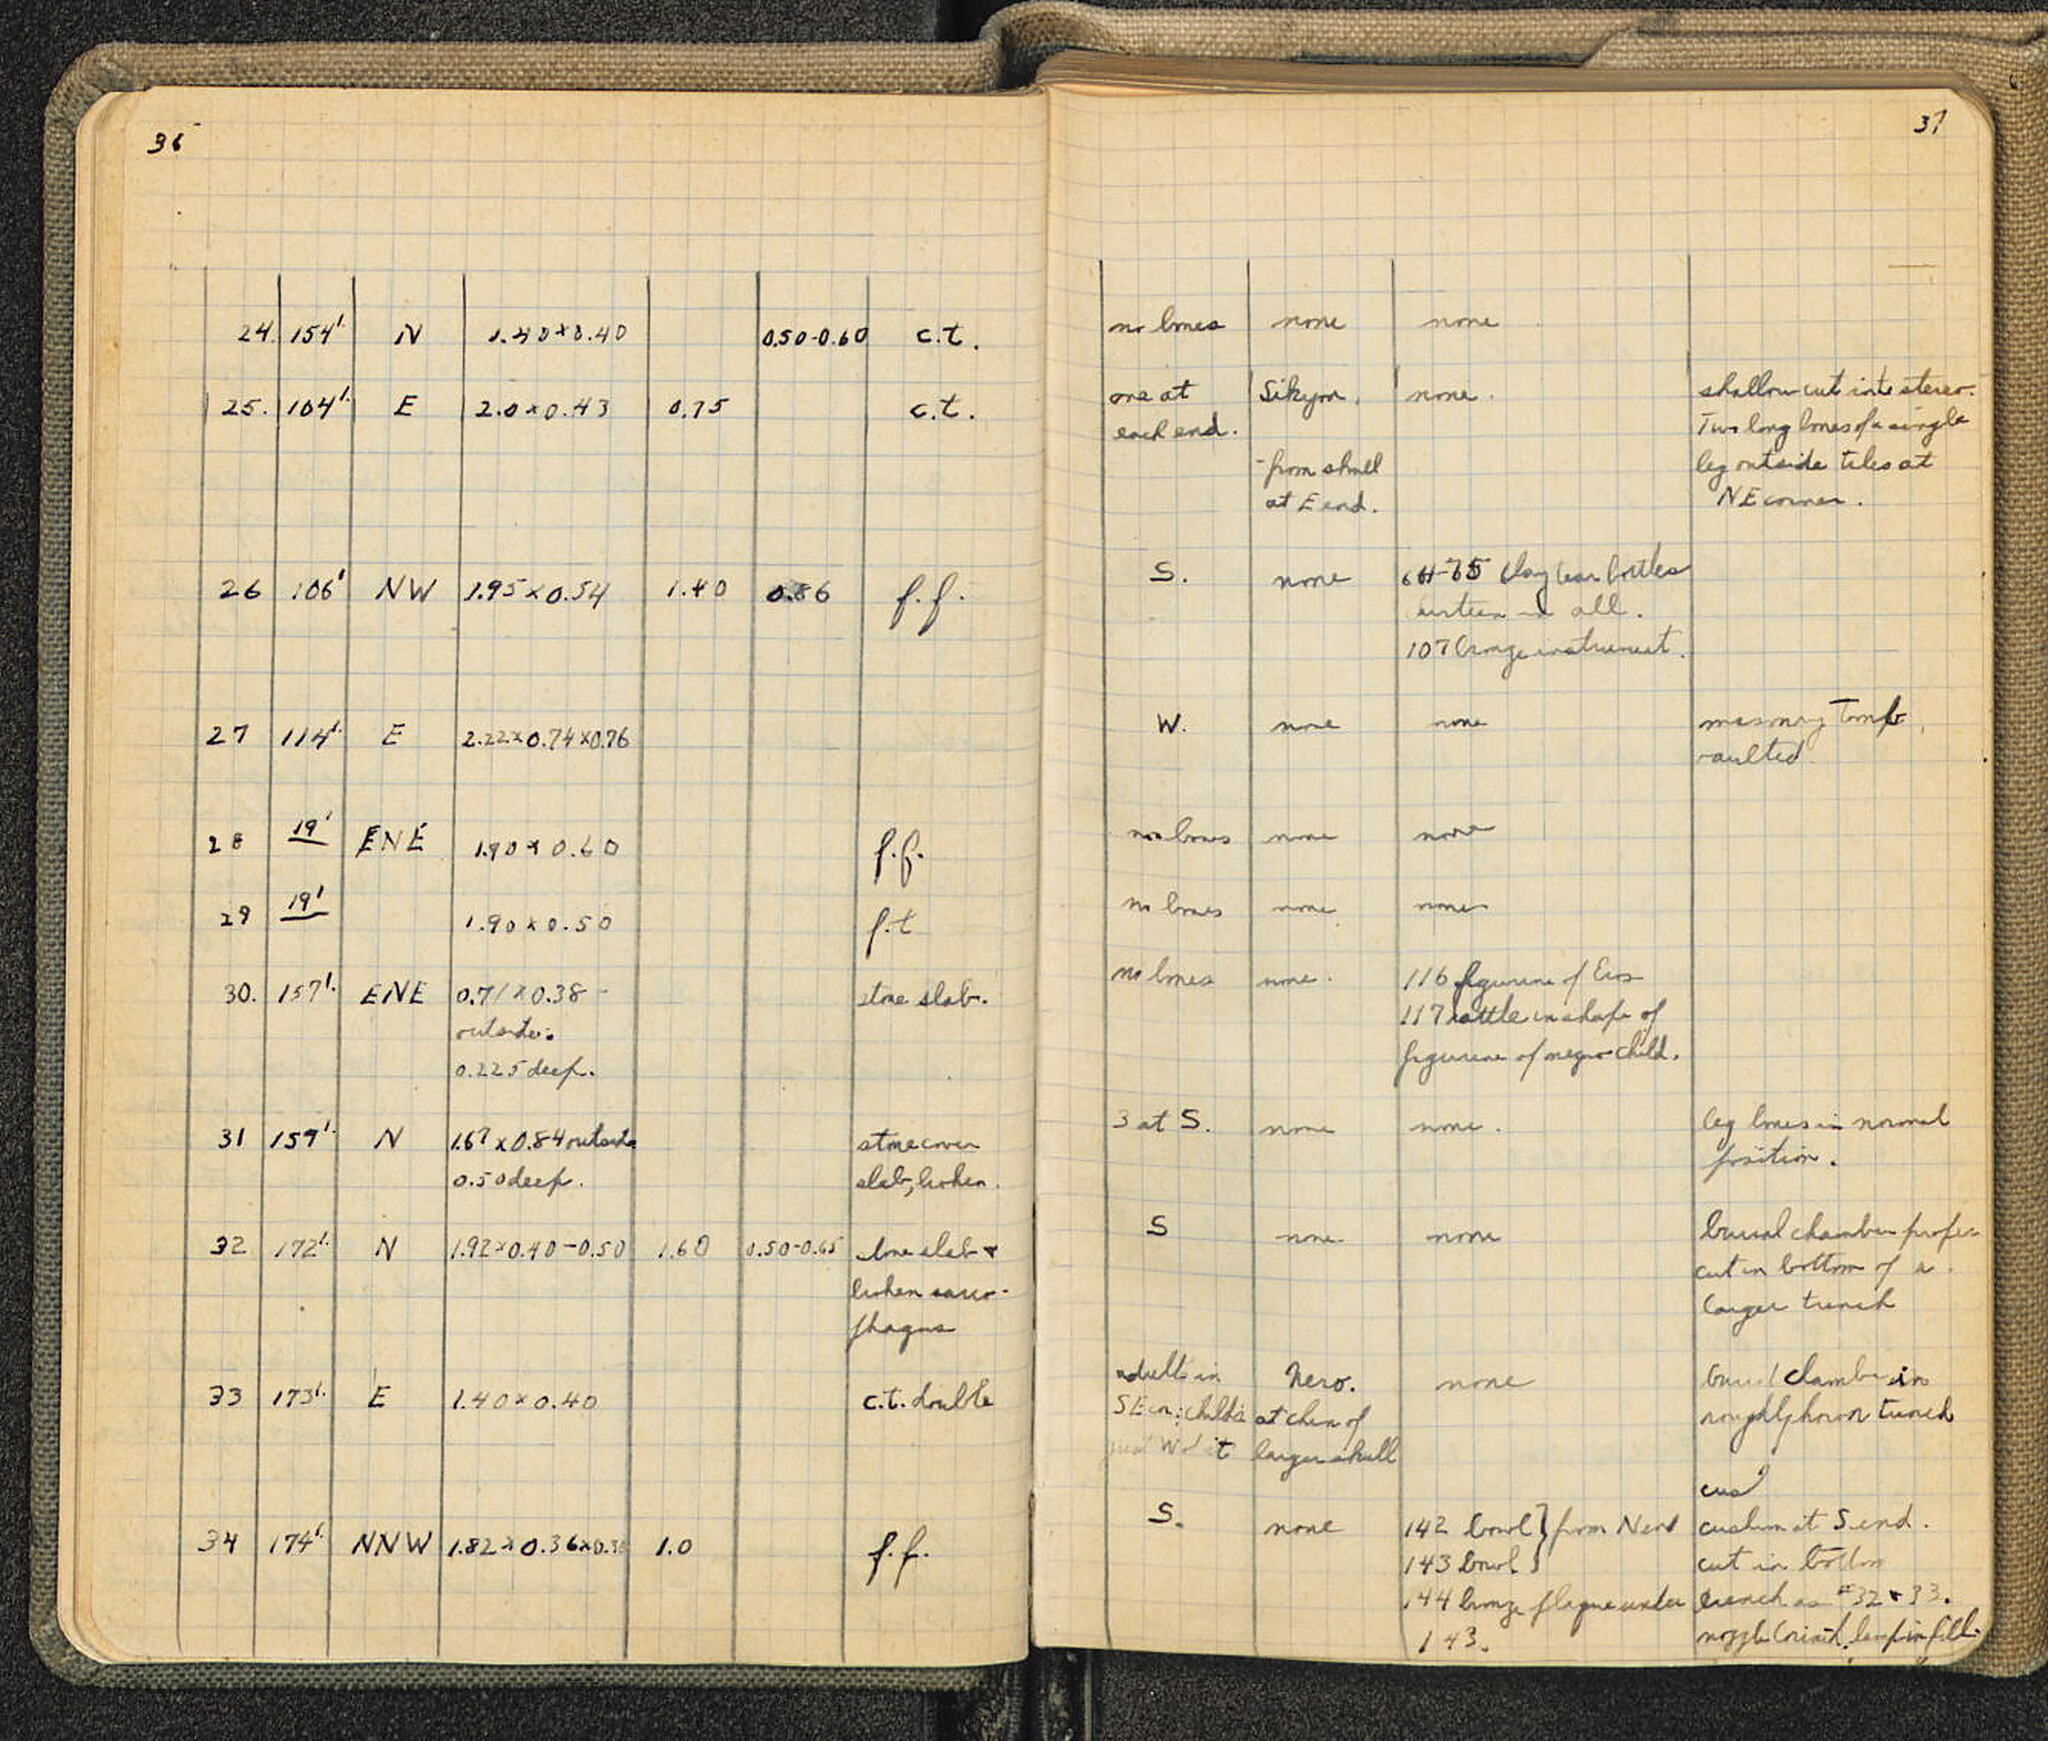 36
24. 154'. N 1.40 x 0.40 0.50-0.60 c.t.
25. 104'. E 2.0 x 0.43 0.75 c.t.
26 106' NW 1.95 x 0.54 1.40 0.86 f.f.
27 114'. E 2.22 x 0.74 x 0.76
28 19' ENE 1.90 x 0.60 f.f.
29 19' 1.90 x 0.50 f.t
30. 157'. ENE 0.71 x 0.38 - stone slab.
outside.
0.225 deep.
31 159'. N 1.67 x 0.84 outside stone cover
0.50 deep. slab, broken.
32 172'. N 1.92 x 0.40-0.50 1.60 0.50-0.65 slab &
broken sarco-
phagus
33 173'. E 1.40 x 0.40 c.t. double
34 174'. NNW 1.82 x 0.36 x 1.0 f.f.
37
no bones none none
one at Sikyon. none. shallow cut into stereo.
each end. Two long bones of a single
- from skull leg outside tiles at
at E end. NE corner.
S. none 64-75 Clay tear bottles
in all.
107 bronze instrument.
W. none none masonry Tomb,
vaulted
no bones none none
no bones none none
no bones none. 116 figurine of Eros
117 rattle in shape of
figurine of negro child.
3 at S. none none. leg bones in normal
position.
S none none burial chamber proper
cut in bottom of a
larger trench
adult's in Nero. none burial chamber in
SE cor; child's at chin of roughly hewn trench
just W of it larger skull
cus
S. none 142 bowl } from Near cushion at S. end.
143 bowl } cut in bottom
144 bronze plaque under trench as #32 & 33.
143. nozzle Corinth. lamp in fill.